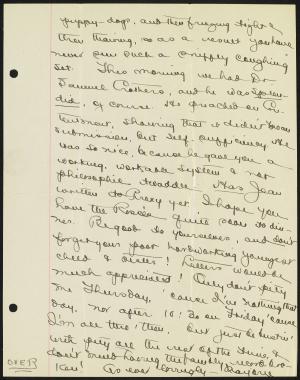 puppy-dogs, and then freezing tight &
then thawing, so as a result you have
never seen such a sniffly coughing
set. This morning we had Dr.
Samuel Crothers, and he was splen-
did, of course. He preached on Con-
tentment, showing that it didn't mean
submission, but self-sufficiency. He
was so nice, because he gave you a
working, workable system & not
philosophic twaddle. Has Jean
written to Proxy yet. I hope you
have the Roscoe quite soon to din-
ner. Be good to yourselves, and don't
forget your poor hardworking youngest
child & sister! Letters would be
much appreciated! Only don't pity
me Thursday, 'cause I've nothing that
day, nor after 10:30 on Friday 'cause
I'm all thru' then. But just be bustin'
with pity all the rest of the time, &
don't mind having the family record bro-
ken!
OVER